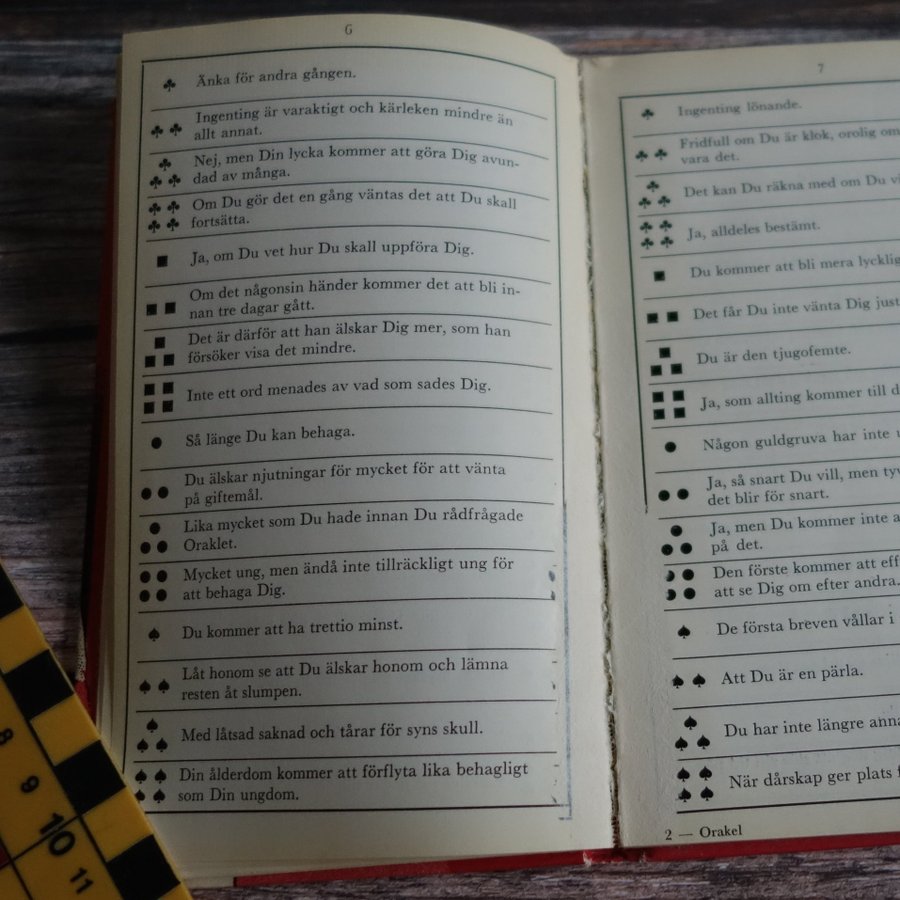 6
Änka för andra gången.
Ingenting är varaktigt och kärleken mindre än
allt annat.
Nej, men Din lycka kommer att göra Dig avun-
dad av många.
Om Du gör det en gång väntas det att Du skall
fortsätta.
Ja, om Du vet hur Du skall uppföra Dig.
Om det någonsin händer kommer det att bli in-
nan tre dagar gått.
Det är därför att han älskar Dig mer, som han
försöker visa det mindre.
Inte ett ord menades av vad som sades Dig.
Så länge Du kan behaga.
Du älskar njutningar för mycket för att vänta
på giftemål.
Lika mycket som Du hade innan Du rådfrågade
Oraklet.
Mycket ung, men ändå inte tillräckligt ung för
att behaga Dig.
Du kommer att ha trettio minst.
Låt honom se att Du älskar honom och lämna
resten åt slumpen.
Med låtsad saknad och tårar för syns skull.
Din ålderdom kommer att förflyta lika behagligt
som Din ungdom.
7
Ingenting lönande.
Fridfull om Du är klok, orolig om
vara det.
Det kan Du räkna med om Du
Ja, alldeles bestämt.
Du kommer att bli mera
Det får Du inte vänta Dig
Du är den tjugofemte.
Ja, som allting kommer till
Någon guldgruva har inte
Ja, så snart Du vill, men
det blir för snart.
Ja, men Du kommer inte
på det.
Den förste kommer att
att se Dig om efter andra.
De första breven vållar i
Att Du är en pärla.
Du har inte längre
När dårskap ger plats
2 — Orakel
8
9
10
11